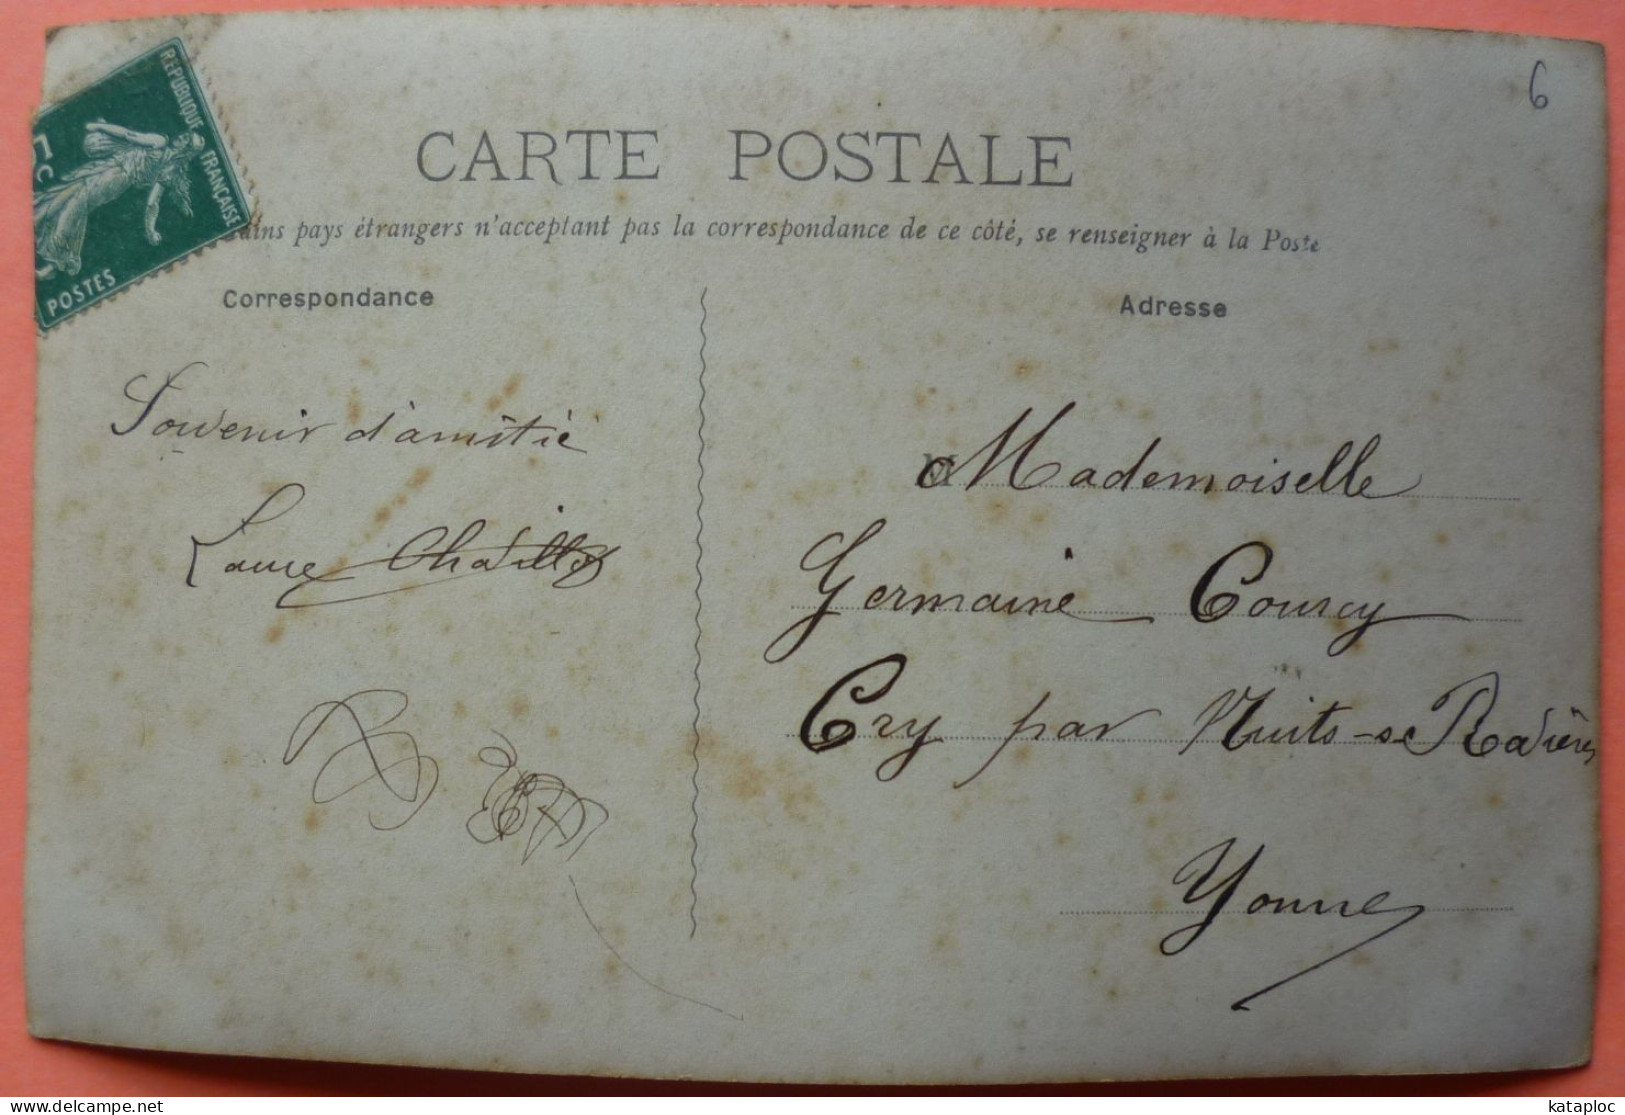 RÉPUBLIQUE FRANÇAISE
5c
POSTES
6
CARTE POSTALE
pays étrangers n'acceptant pas la correspondance de ce côté, se renseigner à la Poste
Correspondance
Adresse
Souvenir d'amitié
Laure
Mademoiselle
Germaine Courcy
Cry par Nuits-s-Ravières
Yonne
delcampe.net
kataploc